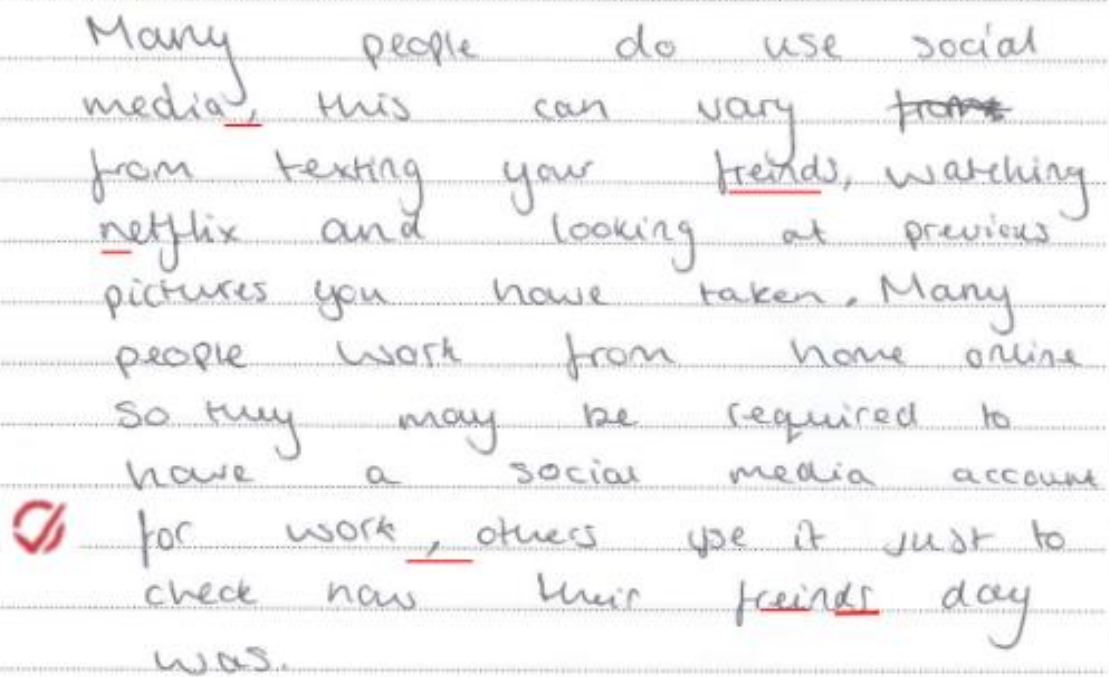 Many people do use social
media, this can vary
from texting your freinds, watching
netflix and looking at previous
pictures you have taken. Many
people work from home online
so they may be required to
have a social media account
for work, others use it just to
check how their freinds day
was.